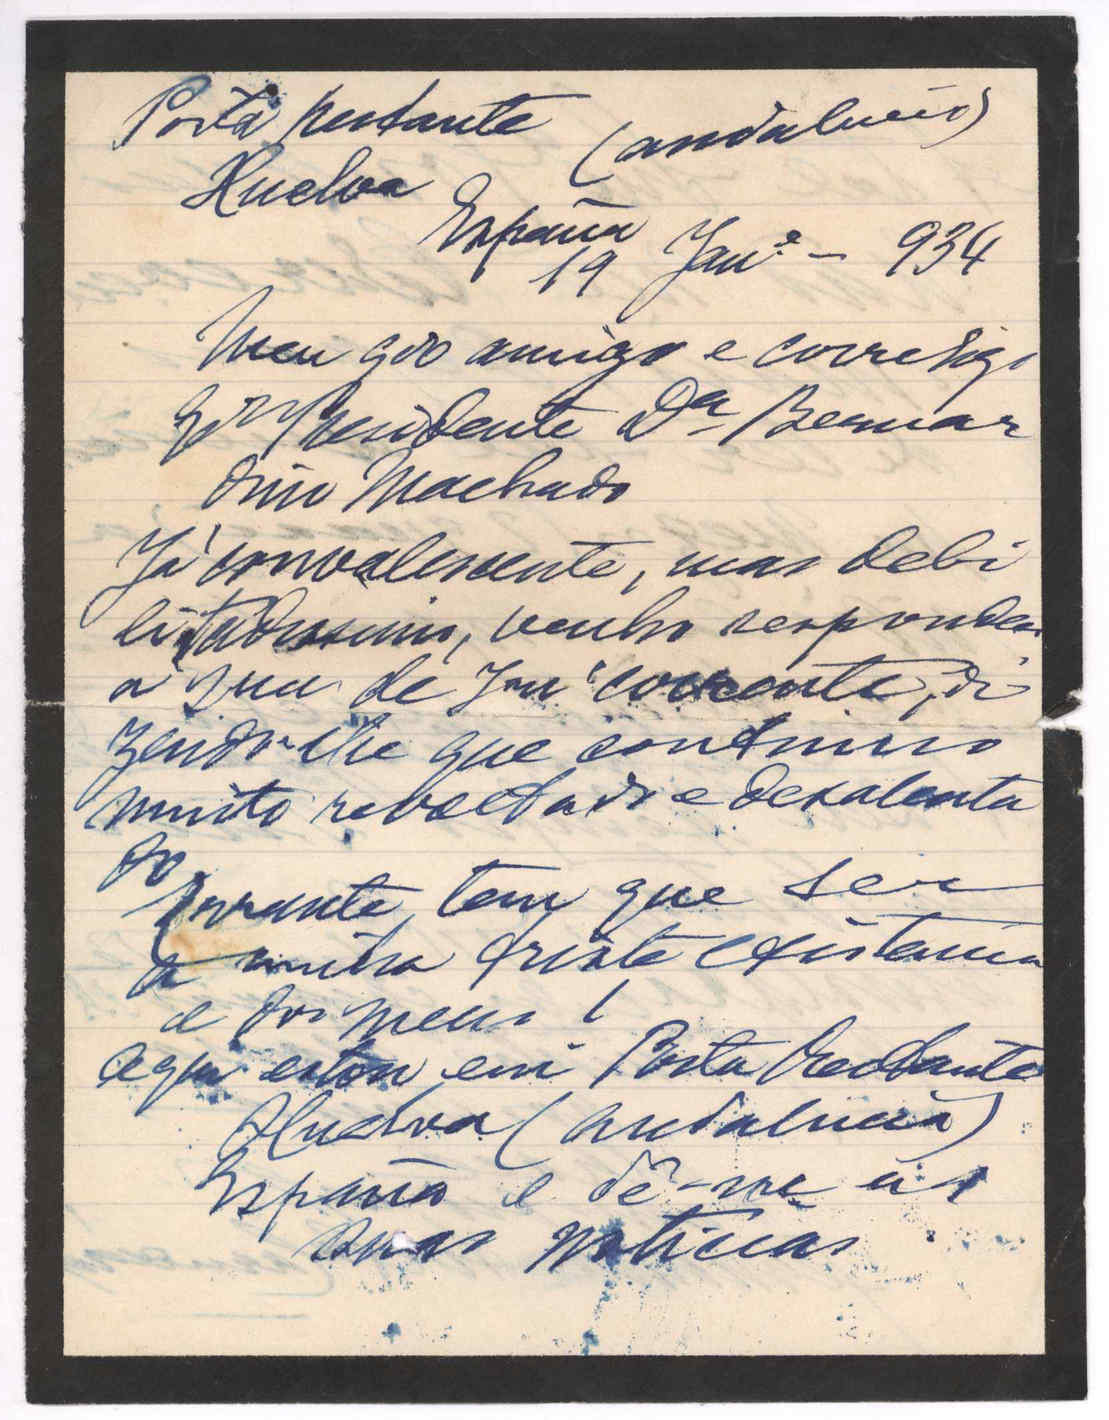 Posta restante
(Andalucia)
Huelva
España
19 Janº - 934
Meu qdo amigo e correlig
Presidente Dr Bernar
dino Machado
Já convalescente, mas debi
litadissimo, venho responder
a sua de Janº corrente, di
zendo-lhe que continuo
muito revoltado e desalenta
do
tem que ser
a minha triste existencia
e dos meus!
aqui estou em Posta Restante
Huelva (Andalucia)
España e dê-me as
suas noticias